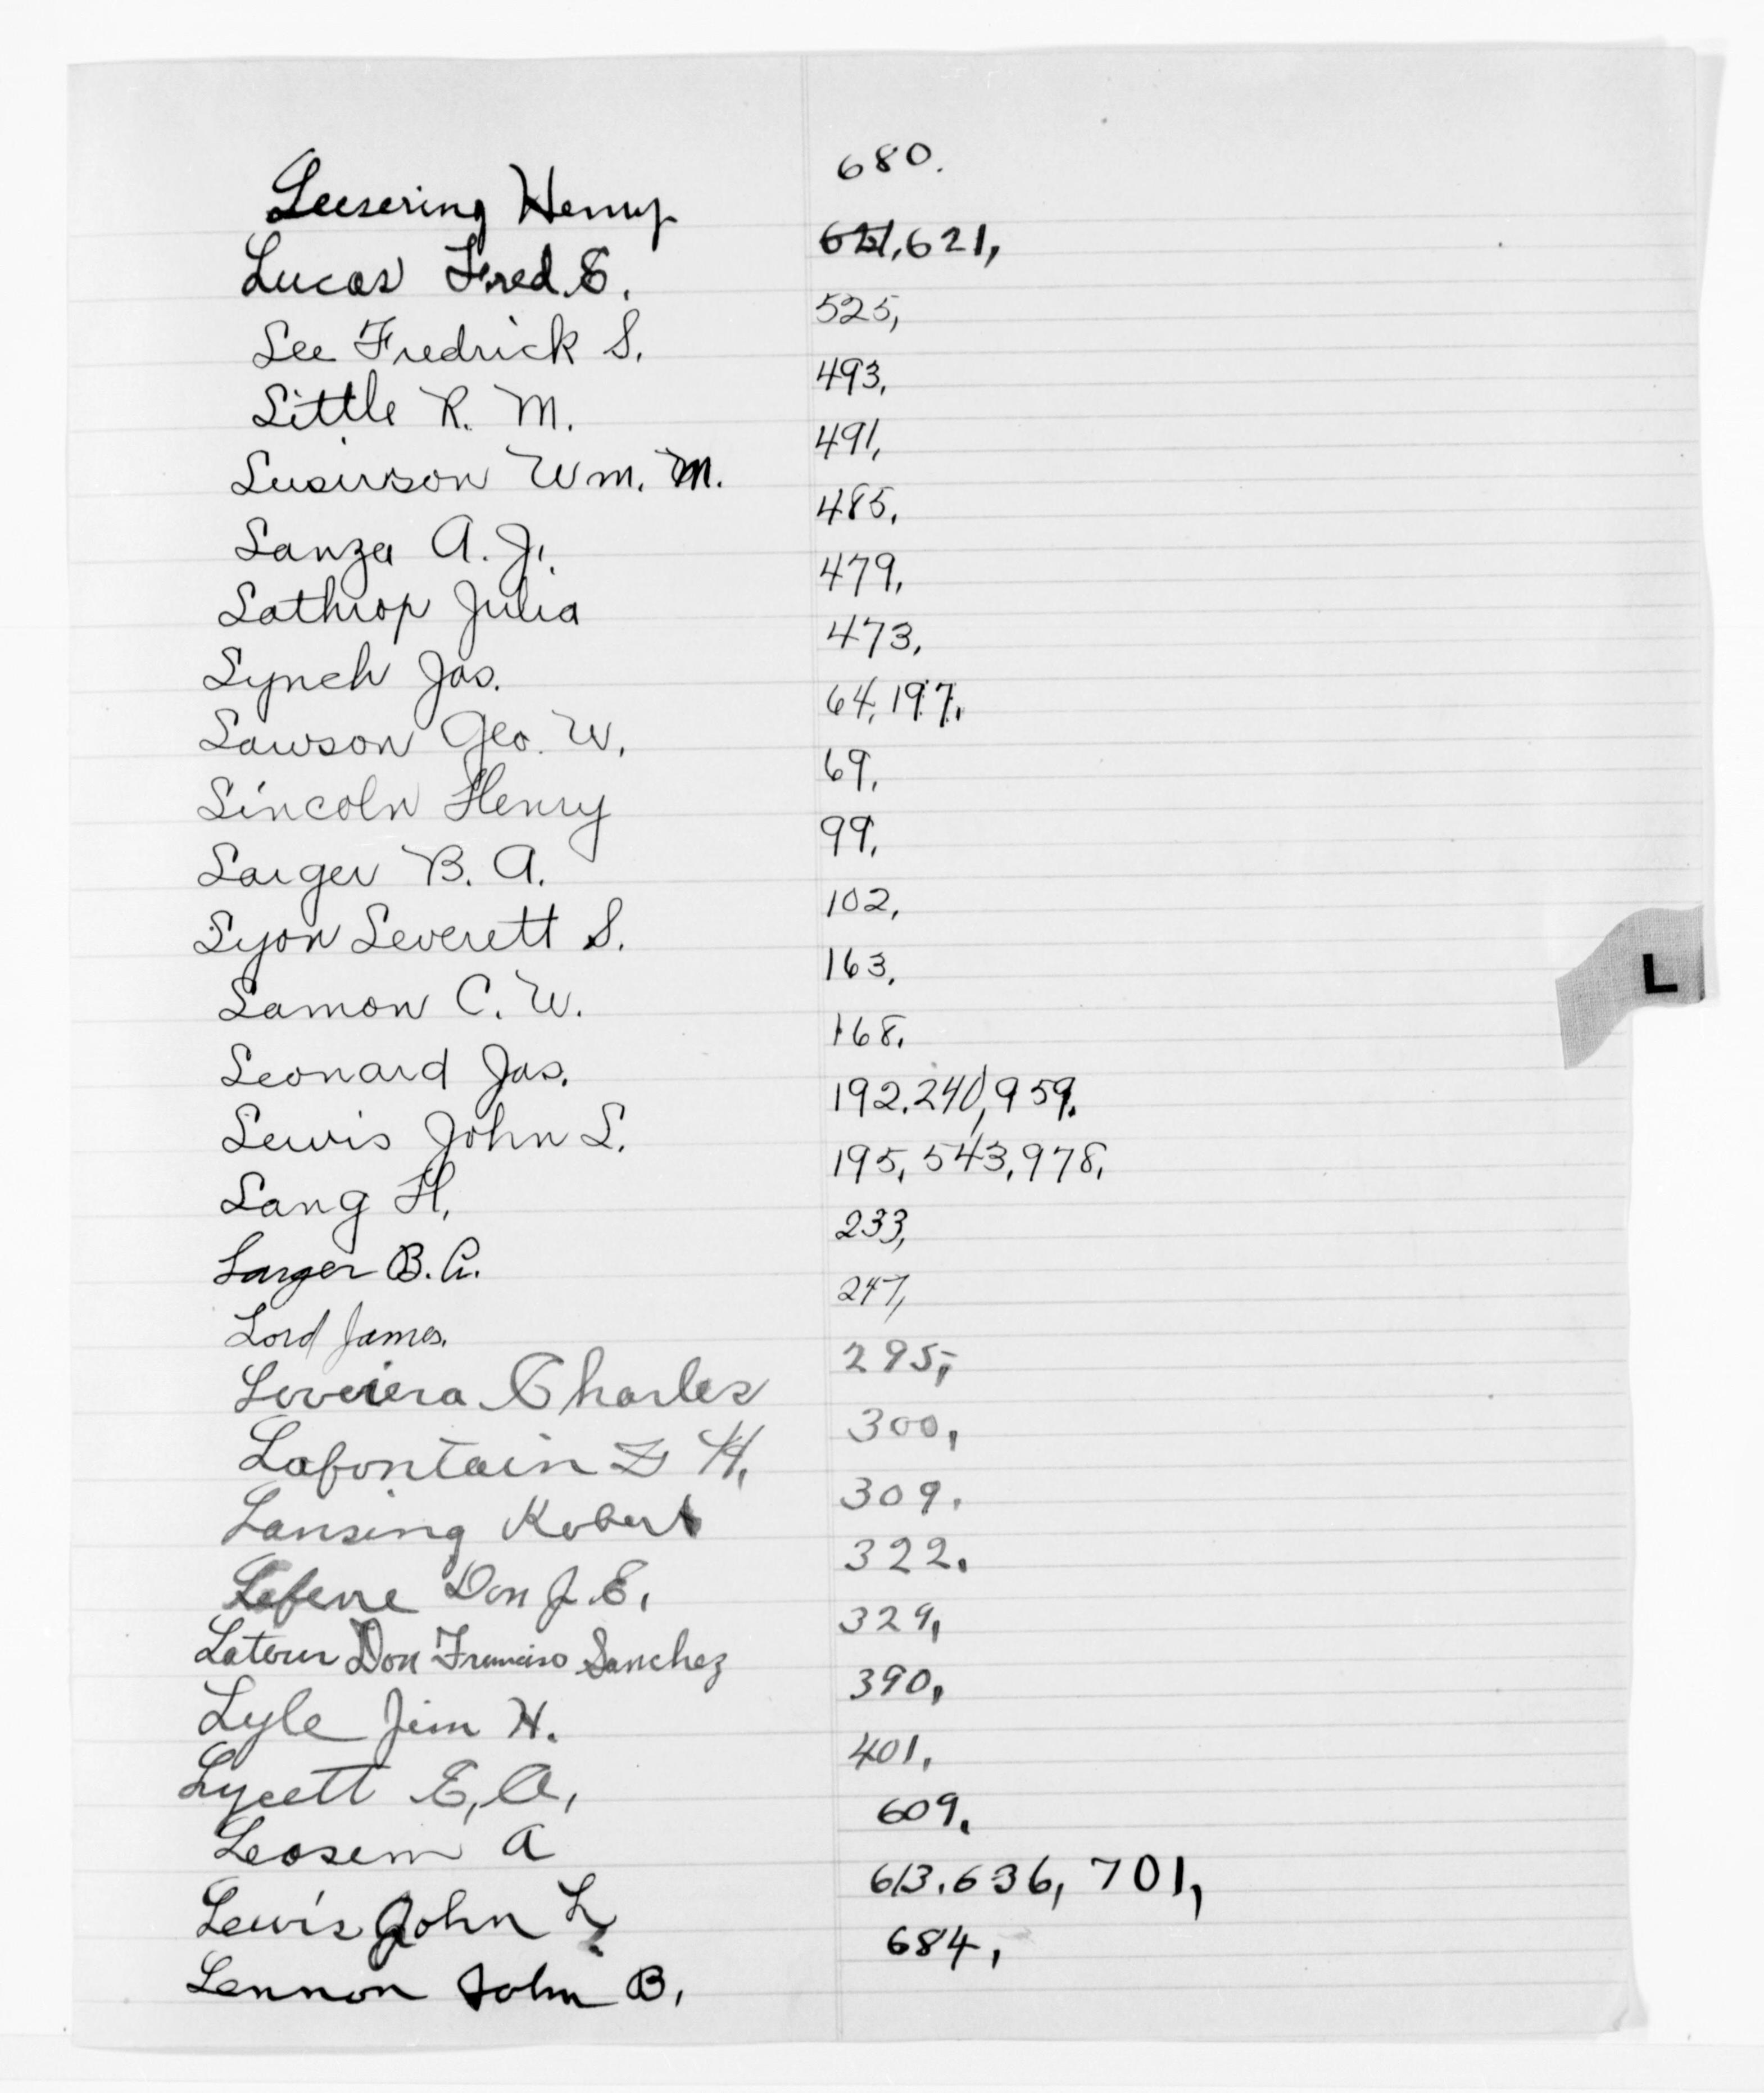 Leesering Henry 680.
Lucas Fred. E. 621, 621,
Lee Fredrick S. 525,
Little R. M. 493,
Wm. M. 491,
Lanza A. J. 485,
Lathrop Julia 479,
Lynch Jas. 473,
Lawson Geo. W. 64, 197,
Lincoln Henry 69,
Larger B. A. 99,
Lyon Leverett S. 102,
Lamon C. W. 163,
Leonard Jas. 168,
Lewis John L. 192, 240, 959,
Lang H. 195, 543, 978,
Larger B. A. 233,
Lord James. 247,
Loveiera Charles 295,
Lafontain Z H, 300,
Lansing Robert 309.
Lefevre Don J. E, 322.
Latour Don Francisco Sanchez 329,
Lyle Jim H. 390,
Lycett E, A, 401,
Leosem A 609,
Lewis John L 613, 636, 701,
Lennon John B, 684,
L